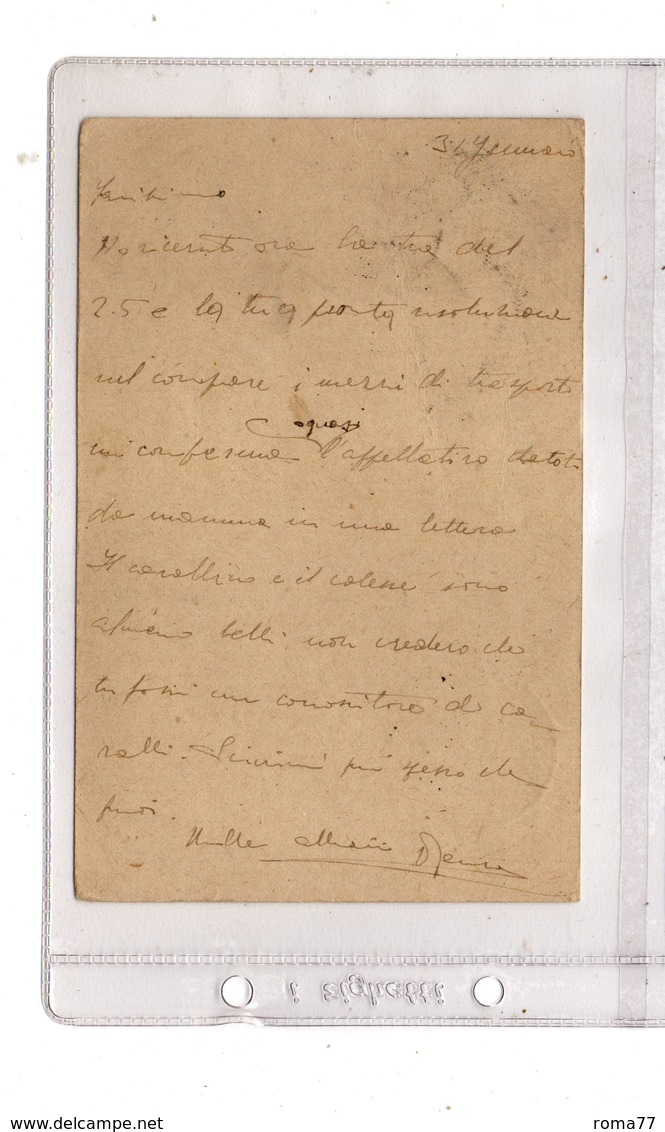 31 Gennaio
Ho ricevuto ora la tua del
25 e la tua pronta risoluzione
nel comprare i mezzi di trasporto
quasi
mi conferma l'appellativo datoti
da mamma in una lettera
Il cavallino e il calesse sono
almeno belli non credevo che
tu fossi un conoscitore di ca-
valli. Scrivimi più spesso che
puoi.
Mille abbracci
i zighetti
www.delcampe.net
roma77